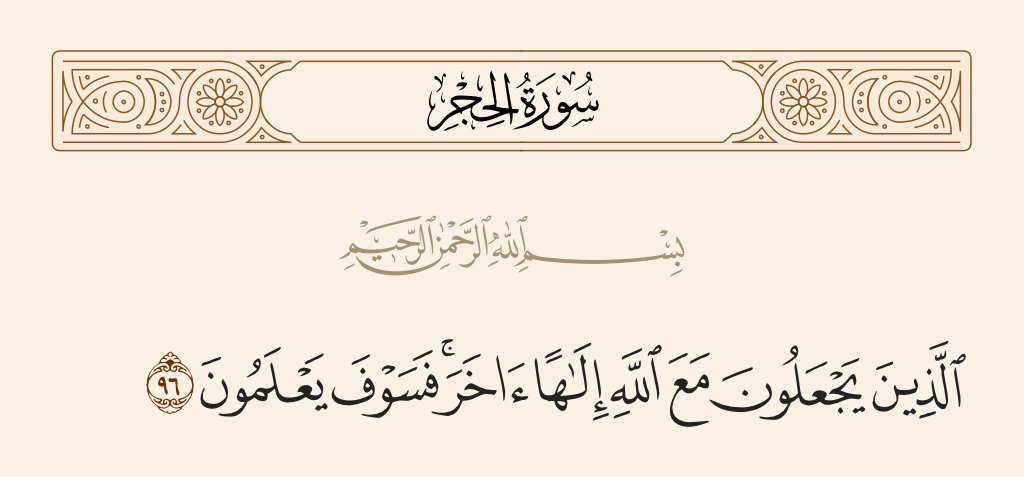 سُورَةُ الْحِجْرِ
بِسْمِ ٱللَّهِ ٱلرَّحْمَٰنِ ٱلرَّحِيمِ
ٱلَّذِينَ يَجْعَلُونَ مَعَ ٱللَّهِ إِلَٰهًا ءَاخَرَ ۚ فَسَوْفَ يَعْلَمُونَ ٩٦